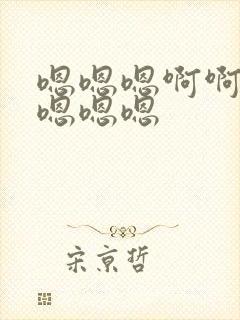 嗯嗯嗯啊啊
嗯嗯嗯
宋京哲